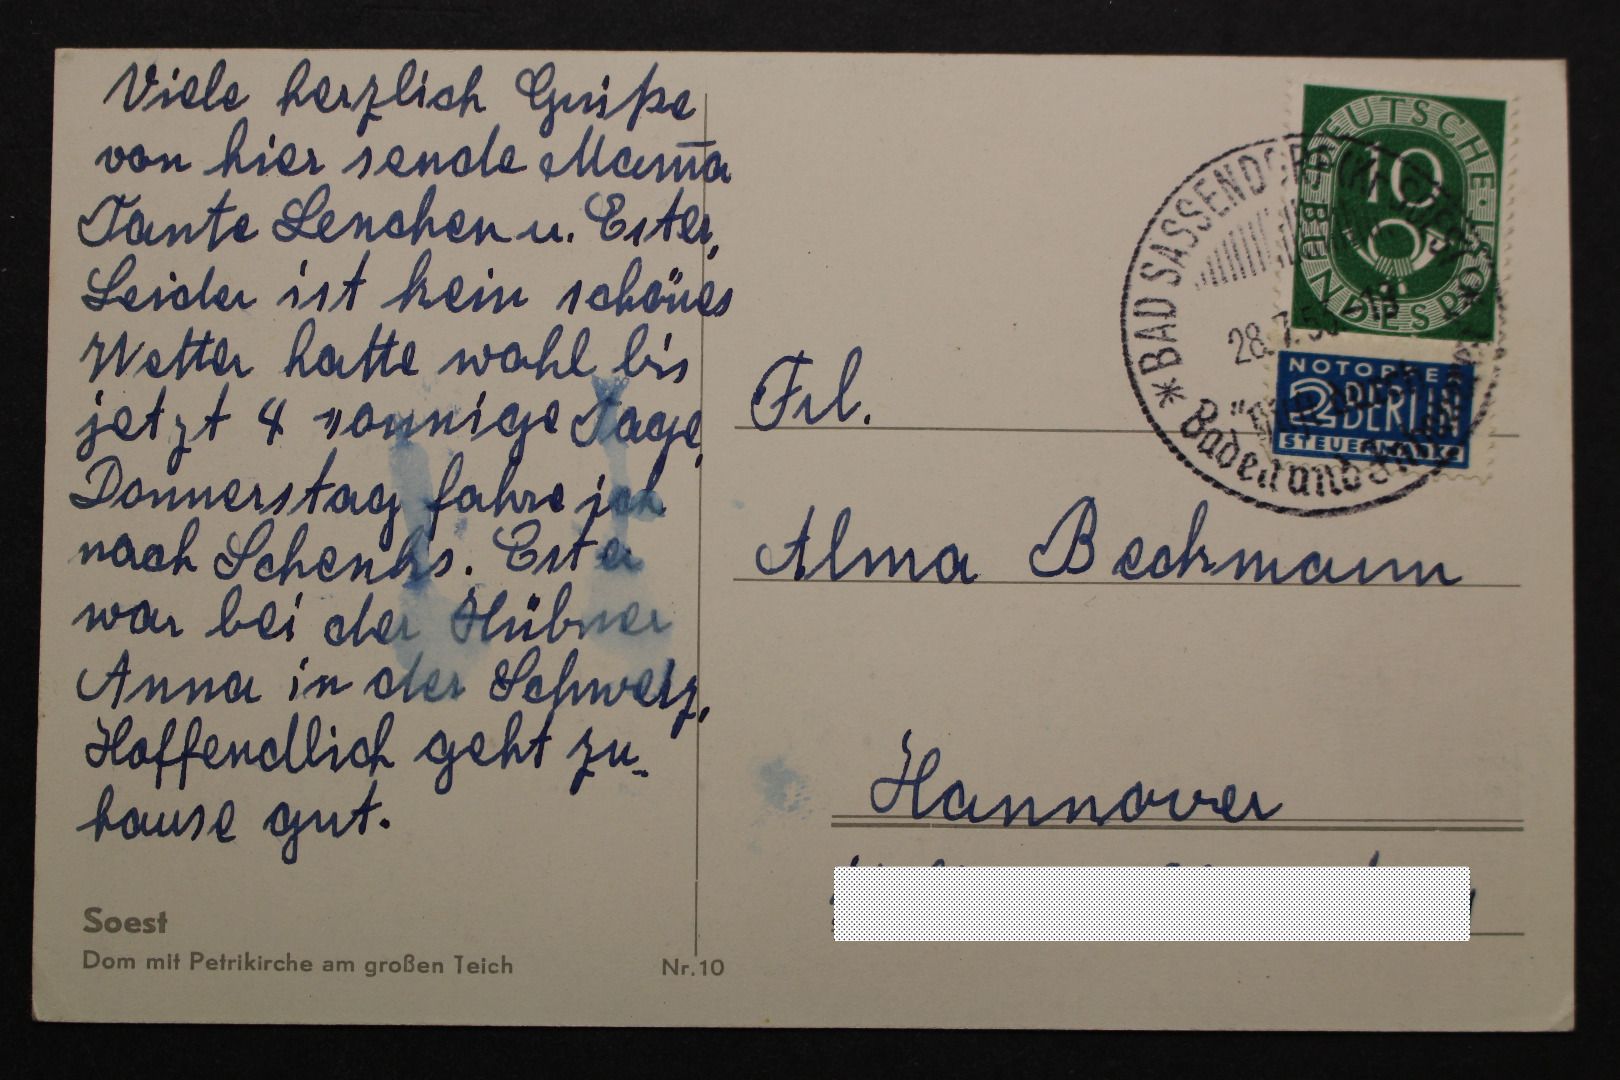 Viele herzlich Grüße
von hier sende Mam̅a
Tante Lenchen u. Ester,
Leider ist kein schönes
Wetter hatte wohl bis
jetzt 4 sonnige Tage,
Donnerstag fahre ich
nach Schenks. Ester
war bei der Hübner
Anna in der Schweiz,
Hoffendlich geht zu-
hause gut.
Soest
Dom mit Petrikirche am großen Teich
Nr.10
Frl.
Alma Beckmann
Hannover
DEUTSCHE BUNDESPOST
10
NOTOPFER
2 BERLIN
STEUERMARKE
* BAD SASSENDORF
28.7.5
Baden und